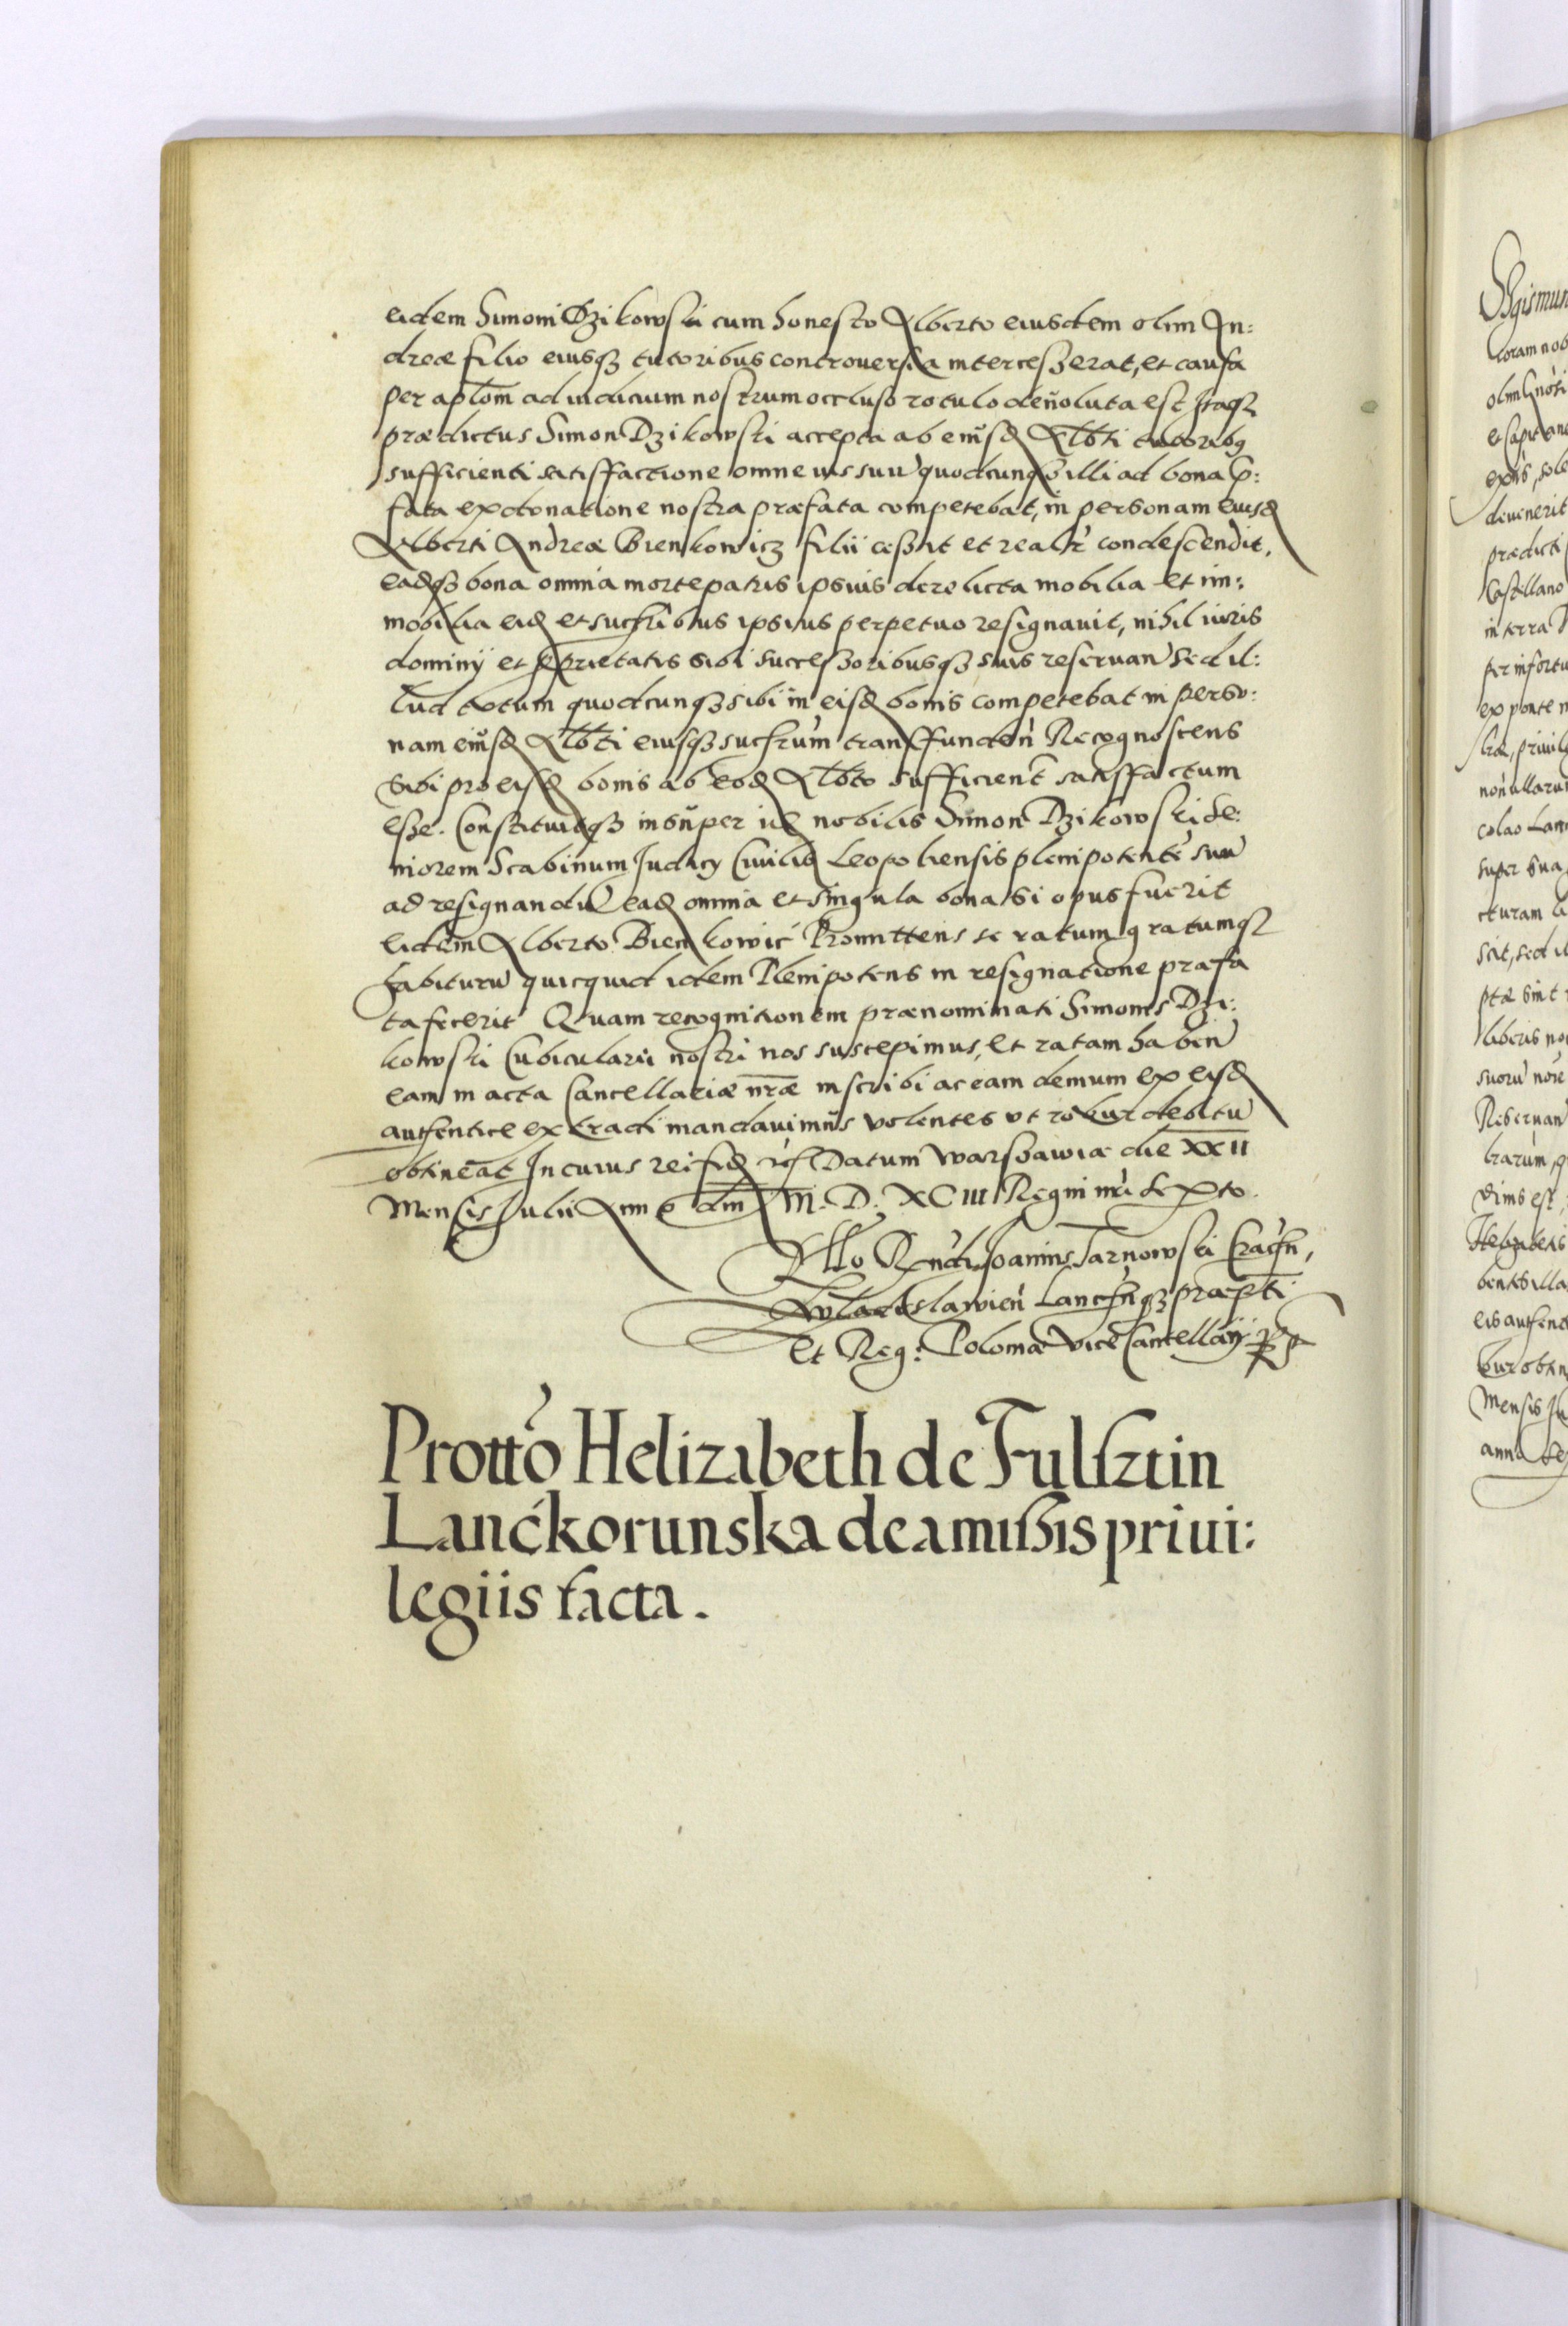 eidem Simoni Dzikowski cum honesto Alberto eiusdem olim An:
dreæ filio eiusqз tutoribus controuersia interceßerat, et causa
per ap̃lõm ad iudicium nostrum occluso rotulo deuoluta est Itaqз
prædictus Simon Dzikowski accepta ab eiusd Alb̃ti tutoribq
sufficienti satisfactione omne ius suũ quodcunqз illi ad bona p̃:
fata ex donatione nostra præfata competebat, in personam eiusd
Alberti Andreæ Bienkowicz filii ceßit et realr̃ condescendit,
eadqз bona omnia morte patris ipsius derelicta mobilia et im:
mobilia eid et succ̃ribus ipsius perpetuo resignauit, nihil iuris
dominij et p̃prietatis sibi succeßoribusqз suis reseruañ sed il:
lud totum quodcunqз sibi in eisd bonis competebat in perso:
nam eiusd Alb̃ti eiusqз succr̃um transfundeñ Recognoscens
sibi pro eisd bonis ab eod Alb̃to sufficient̃ satisfactum
eße. Constituitqз insuper id nobilis Simon Dzikowski Se:
niorem Scabinum Judicij Ciuilis Leopoliensis plenipotentẽ suũ
ad resignandũ ead omnia et singula bona si opus fuerit
eidem Alberto Bienkowic̃ Promittens se ratum gratumqз
habiturũ quicquid idem Plenipotens in resignatione præfa
ta fecerit Quam recognitionem prænominati Simonis Dzi:
kowski Cubicularii nostri nos suscepimus, et ratam habeñ
eam in acta Cancellariæ nr̃æ inscribi ac eam demum ex eisd
authentice extradi mandauimus volentes vt robur debitũ
obtineat In cuius rei fid Datum Warschawiæ die XXII
Mensis Julii Anno dm̃ M. D. XCIII Regni nr̃i Sexto.
Rñdi Joannis Tarnowski Crac̃n,
Wladislawieñ Lancỹnqз præp̃ti
Et Reg: Poloniæ Vice Cancellarij
Protto Helizabeth de Fulsztin
Lanćkorunska de amißis priui:
legiis facta.
Sigismun
coram nob
olim
et Capitane
diuenerit
prædicti
Castellano
in terra
per infortu
ex ponte
colao Lanc
super sua
cturam
scit, sed il
ptæ sint
liberis no
Reseruañ
Mensis Ju